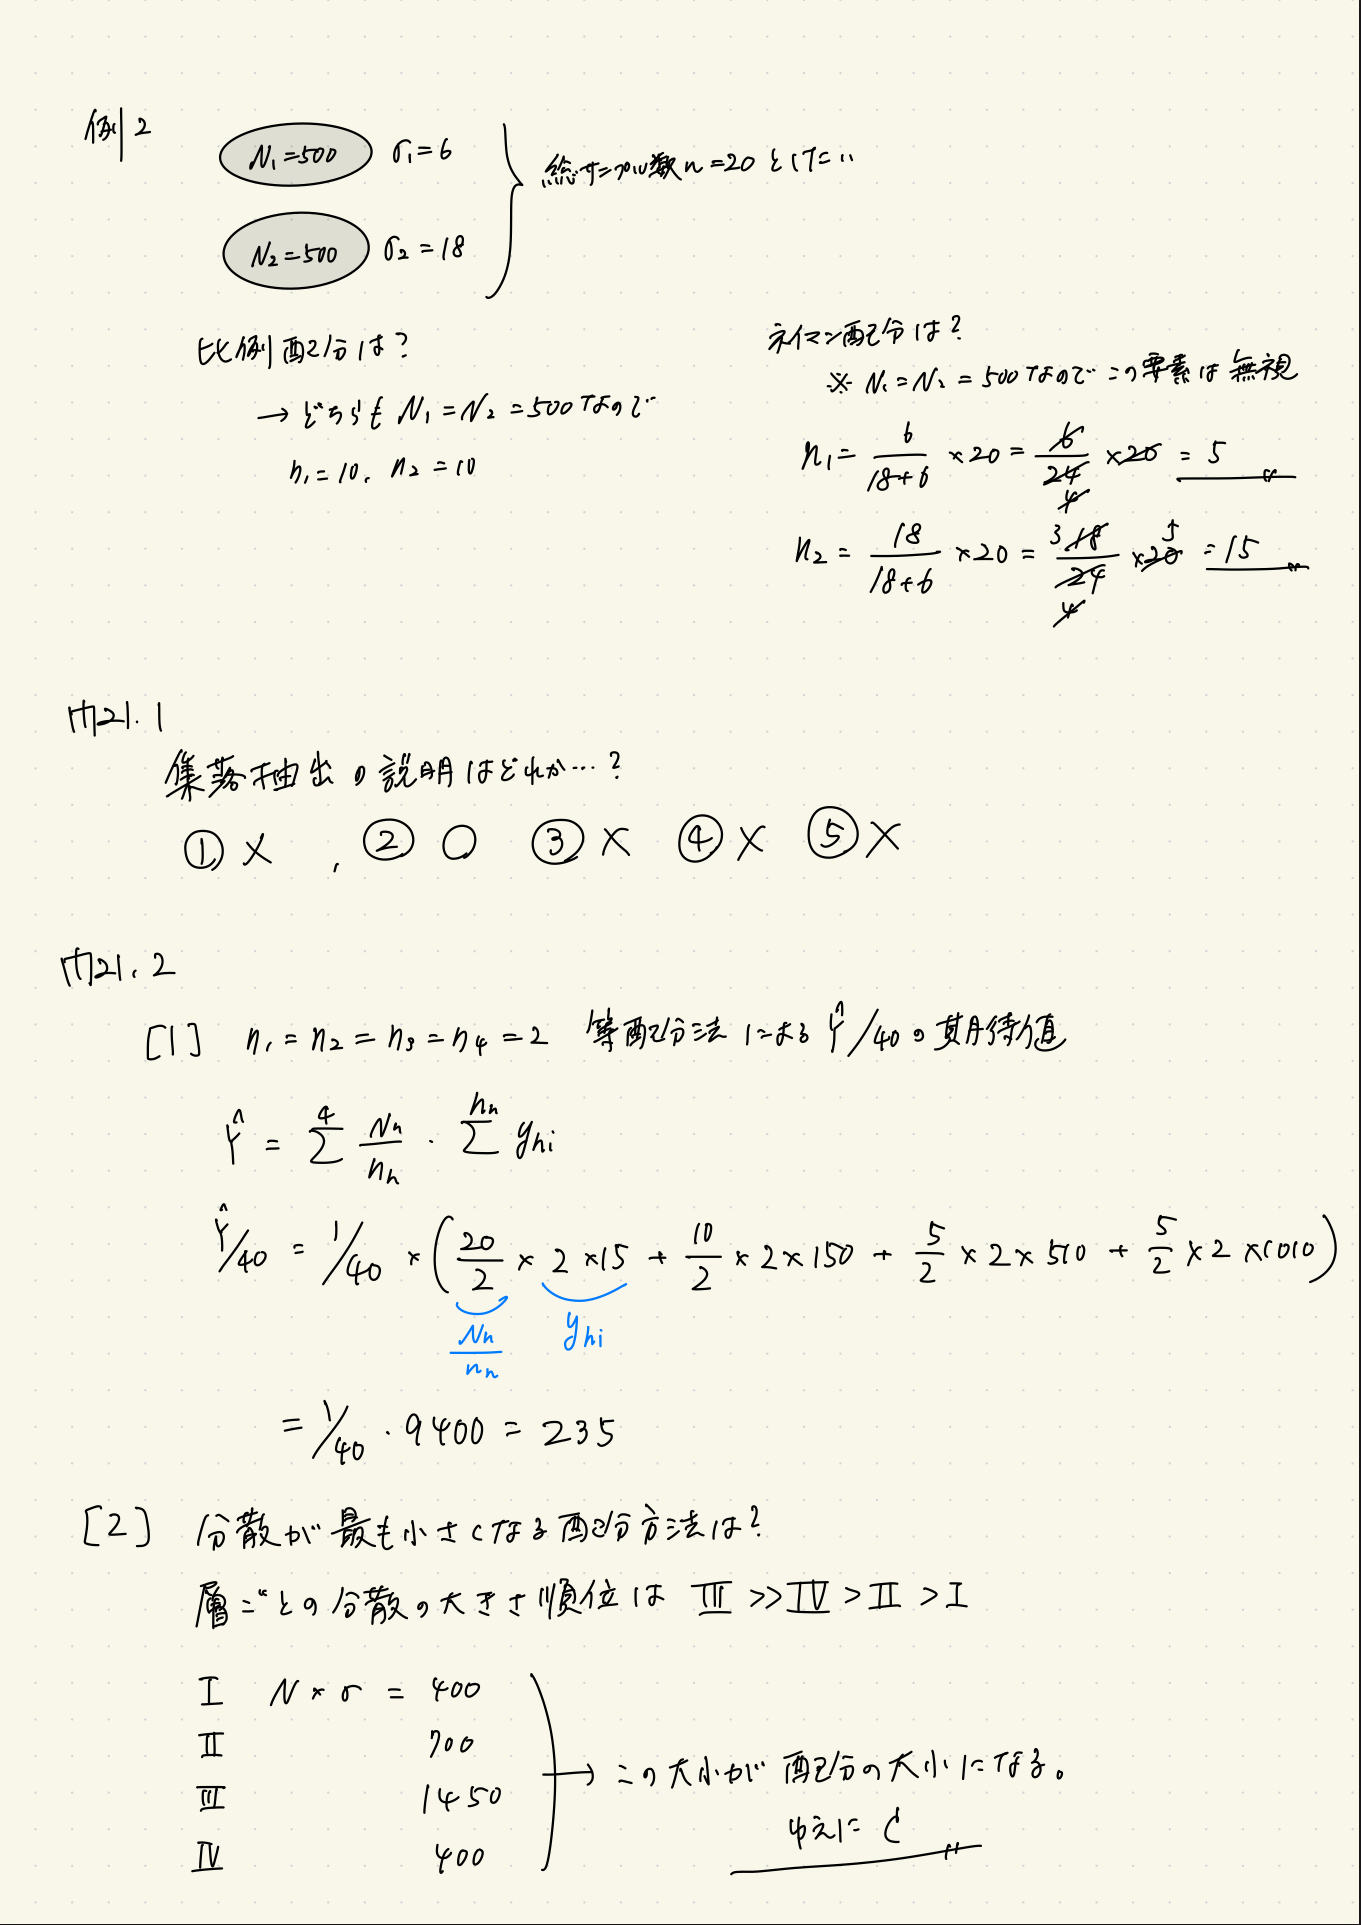 例2
N₁=500 σ₁=6
N₂=500 σ₂=18
総サンプル数n=20としたい
比例配分は?
→どちらも N₁=N₂=500なので
n₁=10, n₂=10
ネイマン配分は?
※ N₁=N₂=500なのでこの要素は無視
n₁= 6/(18+6) ×20 = 6/24 ×20 = 5
4
n₂ = 18/(18+6) ×20 = 18/24 ×20 = 15
3 5
4
問21.1
集落抽出の説明はどれか…?
① × , ② ○ ③ × ④ × ⑤ ×
問21.2
[1] n₁=n₂=n₃=n₄=2 等配分法による Ŷ/40の期待値
Ŷ = Σ⁴ Nₕ/nₕ · Σ^nₕ yhi
Ŷ/40 = 1/40 × (20/2 × 2×15 + 10/2 × 2×150 + 5/2 × 2×510 + 5/2 ×2×1010)
Nₕ/nₕ yhi
= 1/40 · 9400 = 235
[2] 分散が最も小さくなる配分方法は?
層ごとの分散の大きさ順位は Ⅲ >> Ⅳ > Ⅱ > Ⅰ
Ⅰ N×σ = 400
Ⅱ 700
Ⅲ 1450
Ⅳ 400
→ この大小が配分の大小になる。
ゆえに C